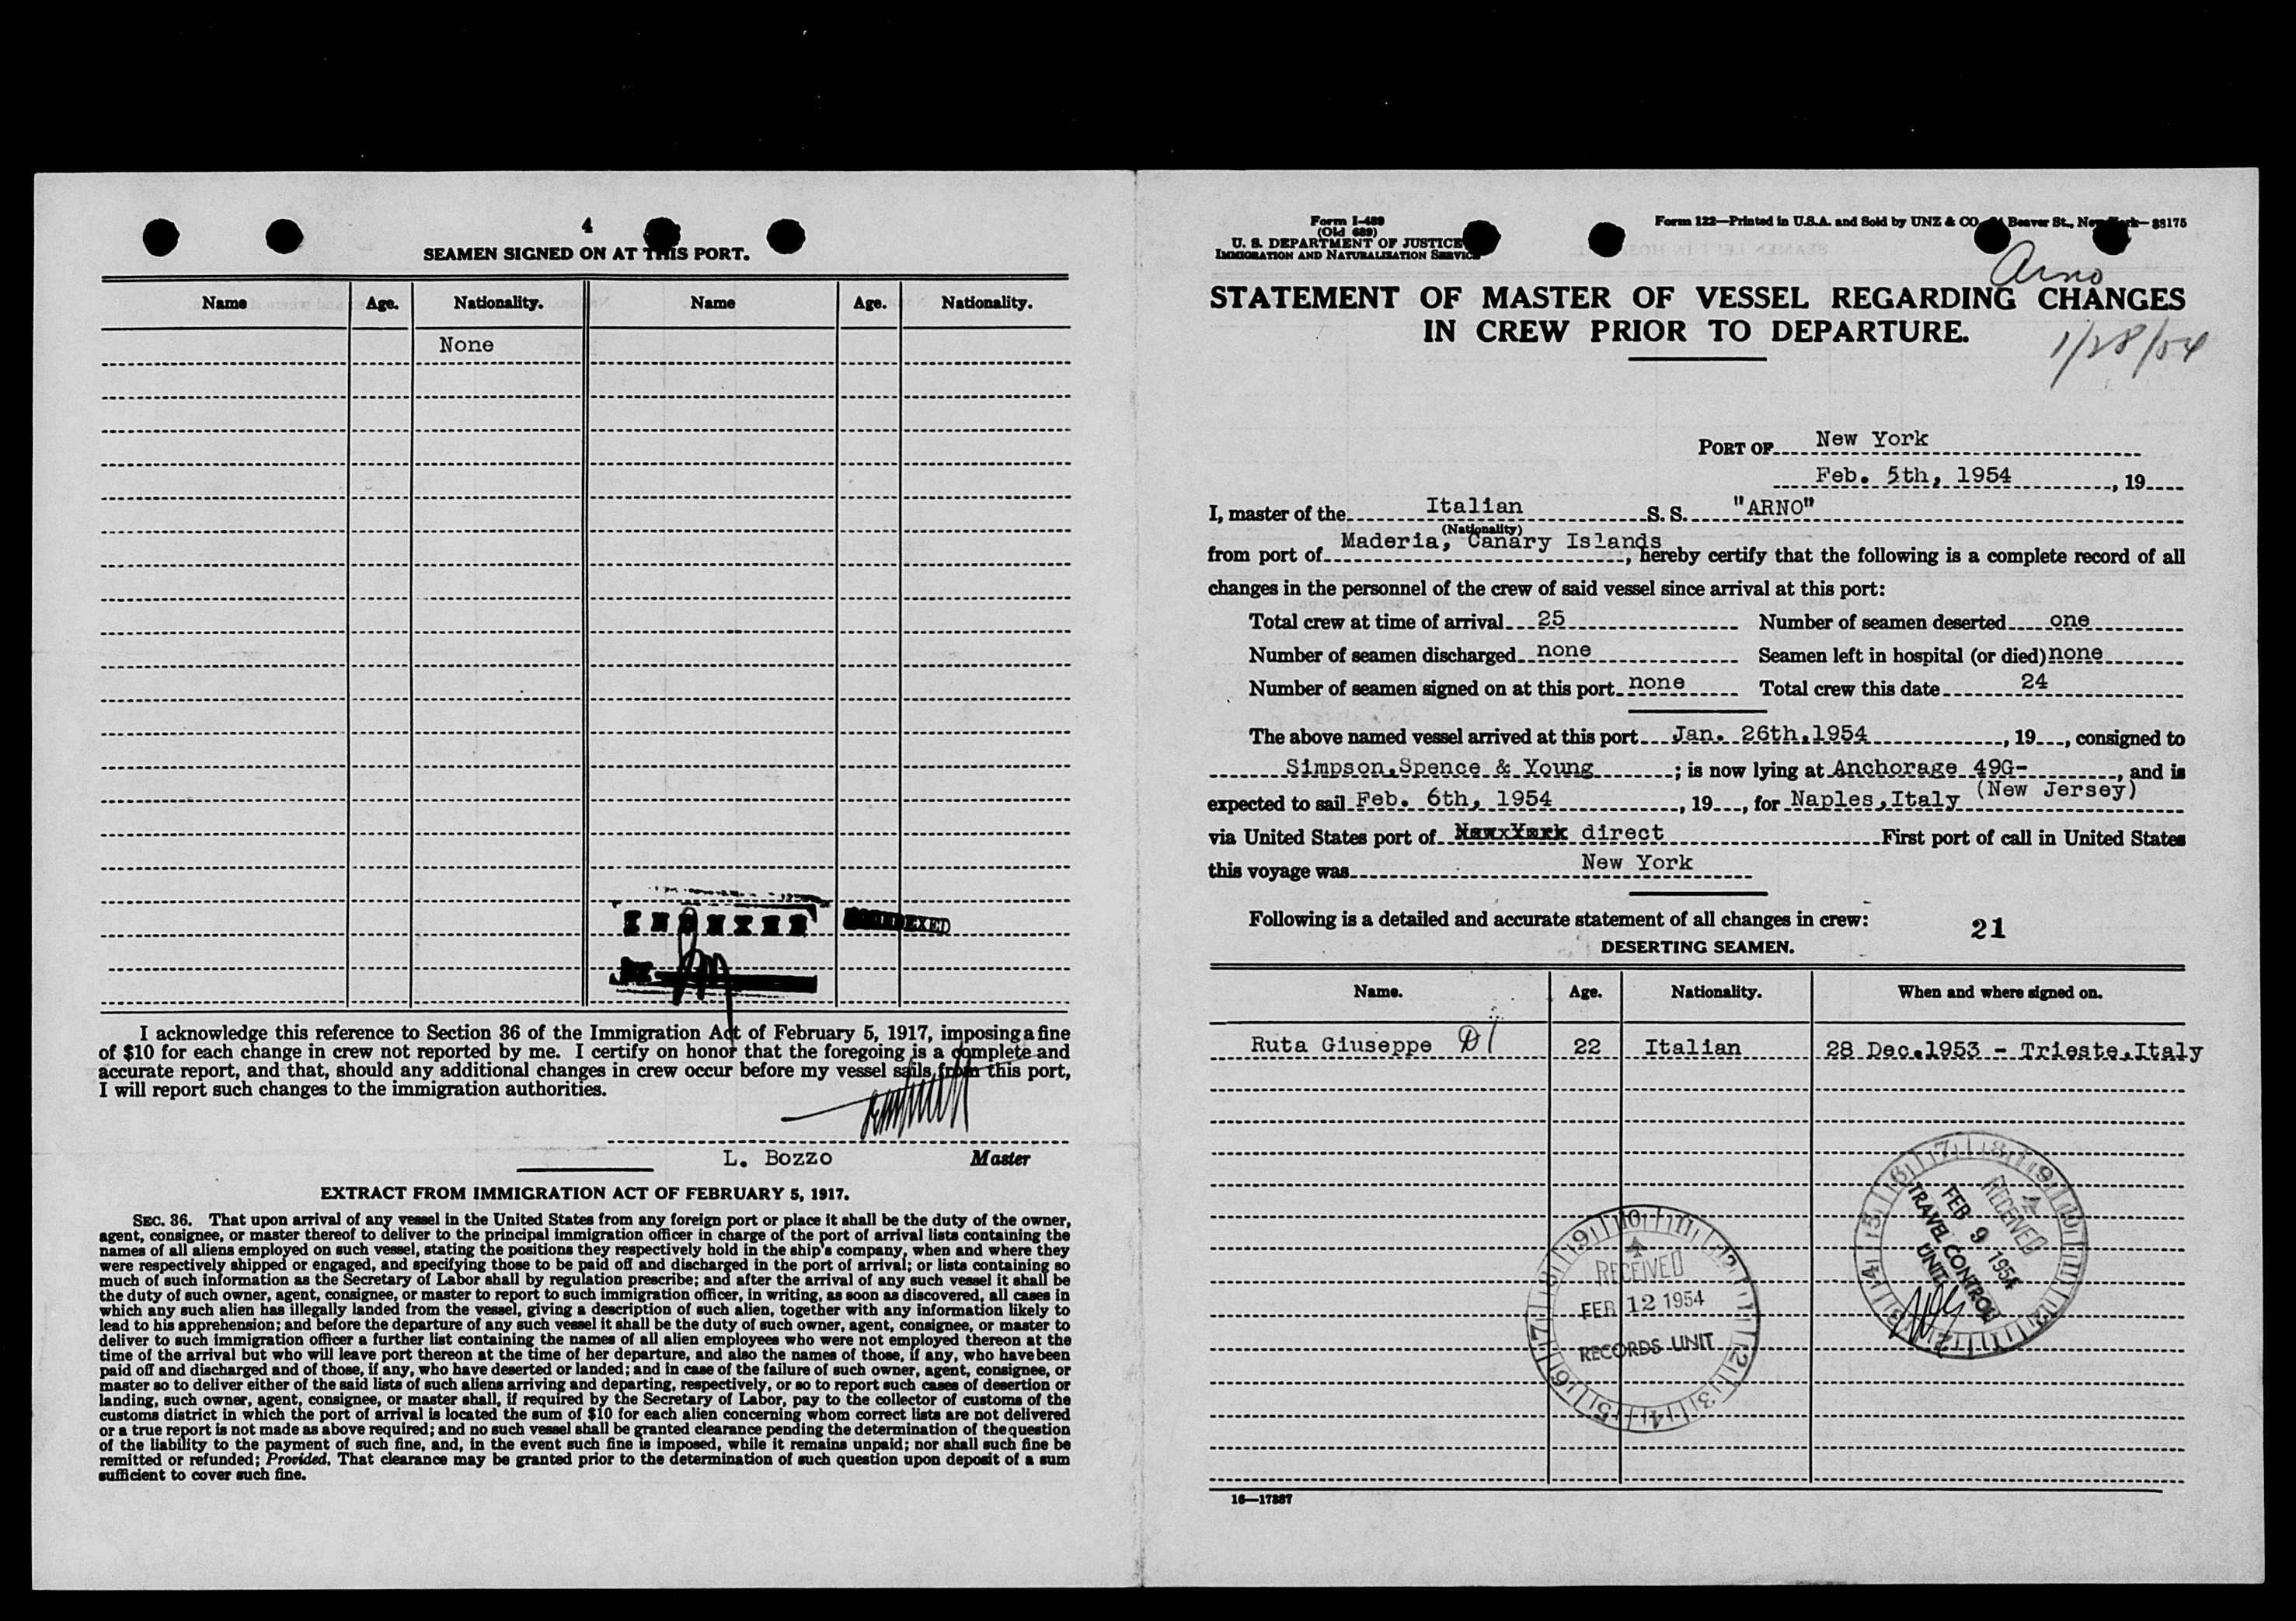 4
SEAMEN SIGNED ON AT THIS PORT.
Name Age. Nationality. Name Age. Nationality.
None
I acknowledge this reference to Section 36 of the Immigration Act of February 5, 1917, imposing a fine
of $10 for each change in crew not reported by me. I certify on honor that the foregoing is a complete and
accurate report, and that, should any additional changes in crew occur before my vessel sails from this port,
I will report such changes to the immigration authorities.
L. Bozzo Master
EXTRACT FROM IMMIGRATION ACT OF FEBRUARY 5, 1917.
SEC. 36. That upon arrival of any vessel in the United States from any foreign port or place it shall be the duty of the owner,
agent, consignee, or master thereof to deliver to the principal immigration officer in charge of the port of arrival lists containing the
names of all aliens employed on such vessel, stating the positions they respectively hold in the ship's company, when and where they
were respectively shipped or engaged, and specifying those to be paid off and discharged in the port of arrival; or lists containing so
much of such information as the Secretary of Labor shall by regulation prescribe; and after the arrival of any such vessel it shall be
the duty of such owner, agent, consignee, or master to report to such immigration officer, in writing, as soon as discovered, all cases in
which any such alien has illegally landed from the vessel, giving a description of such alien, together with any information likely to
lead to his apprehension; and before the departure of any such vessel it shall be the duty of such owner, agent, consignee, or master to
deliver to such immigration officer a further list containing the names of all alien employees who were not employed thereon at the
time of the arrival but who will leave port thereon at the time of her departure, and also the names of those, if any, who have been
paid off and discharged and of those, if any, who have deserted or landed; and in case of the failure of such owner, agent, consignee, or
master so to deliver either of the said lists of such aliens arriving and departing, respectively, or so to report such cases of desertion or
landing, such owner, agent, consignee, or master shall, if required by the Secretary of Labor, pay to the collector of customs of the
customs district in which the port of arrival is located the sum of $10 for each alien concerning whom correct lists are not delivered
or a true report is not made as above required; and no such vessel shall be granted clearance pending the determination of the question
of the liability to the payment of such fine, and, in the event such fine is imposed, while it remains unpaid; nor shall such fine be
remitted or refunded; Provided, That clearance may be granted prior to the determination of such question upon deposit of a sum
sufficient to cover such fine.
Form I-489
(Old 689)
U. S. DEPARTMENT OF JUSTICE
IMMIGRATION AND NATURALIZATION SERVICE
Form 122—Printed in U.S.A. and Sold by UNZ & CO. Beaver St., New York—38175
Arno
STATEMENT OF MASTER OF VESSEL REGARDING CHANGES
IN CREW PRIOR TO DEPARTURE.
1/28/54
PORT OF New York
Feb. 5th, 1954, 19
I, master of the Italian S. S. "ARNO"
(Nationality)
from port of Maderia, Canary Islands, hereby certify that the following is a complete record of all
changes in the personnel of the crew of said vessel since arrival at this port:
Total crew at time of arrival 25 Number of seamen deserted one
Number of seamen discharged none Seamen left in hospital (or died) none
Number of seamen signed on at this port none Total crew this date 24
The above named vessel arrived at this port Jan. 26th,1954, 19, consigned to
Simpson,Spence & Young; is now lying at Anchorage 49G-, and is
expected to sail Feb. 6th, 1954, 19, for Naples,Italy (New Jersey)
via United States port of direct First port of call in United States
this voyage was New York
Following is a detailed and accurate statement of all changes in crew:
21
DESERTING SEAMEN.
Name. Age. Nationality. When and where signed on.
Ruta Giuseppe 22 Italian 28 Dec.1953 - Trieste,Italy
RECEIVED
FEB 9 1954
TRAVEL CONTROL
UNIT
RECEIVED
FEB 12 1954
RECORDS UNIT
16—17387